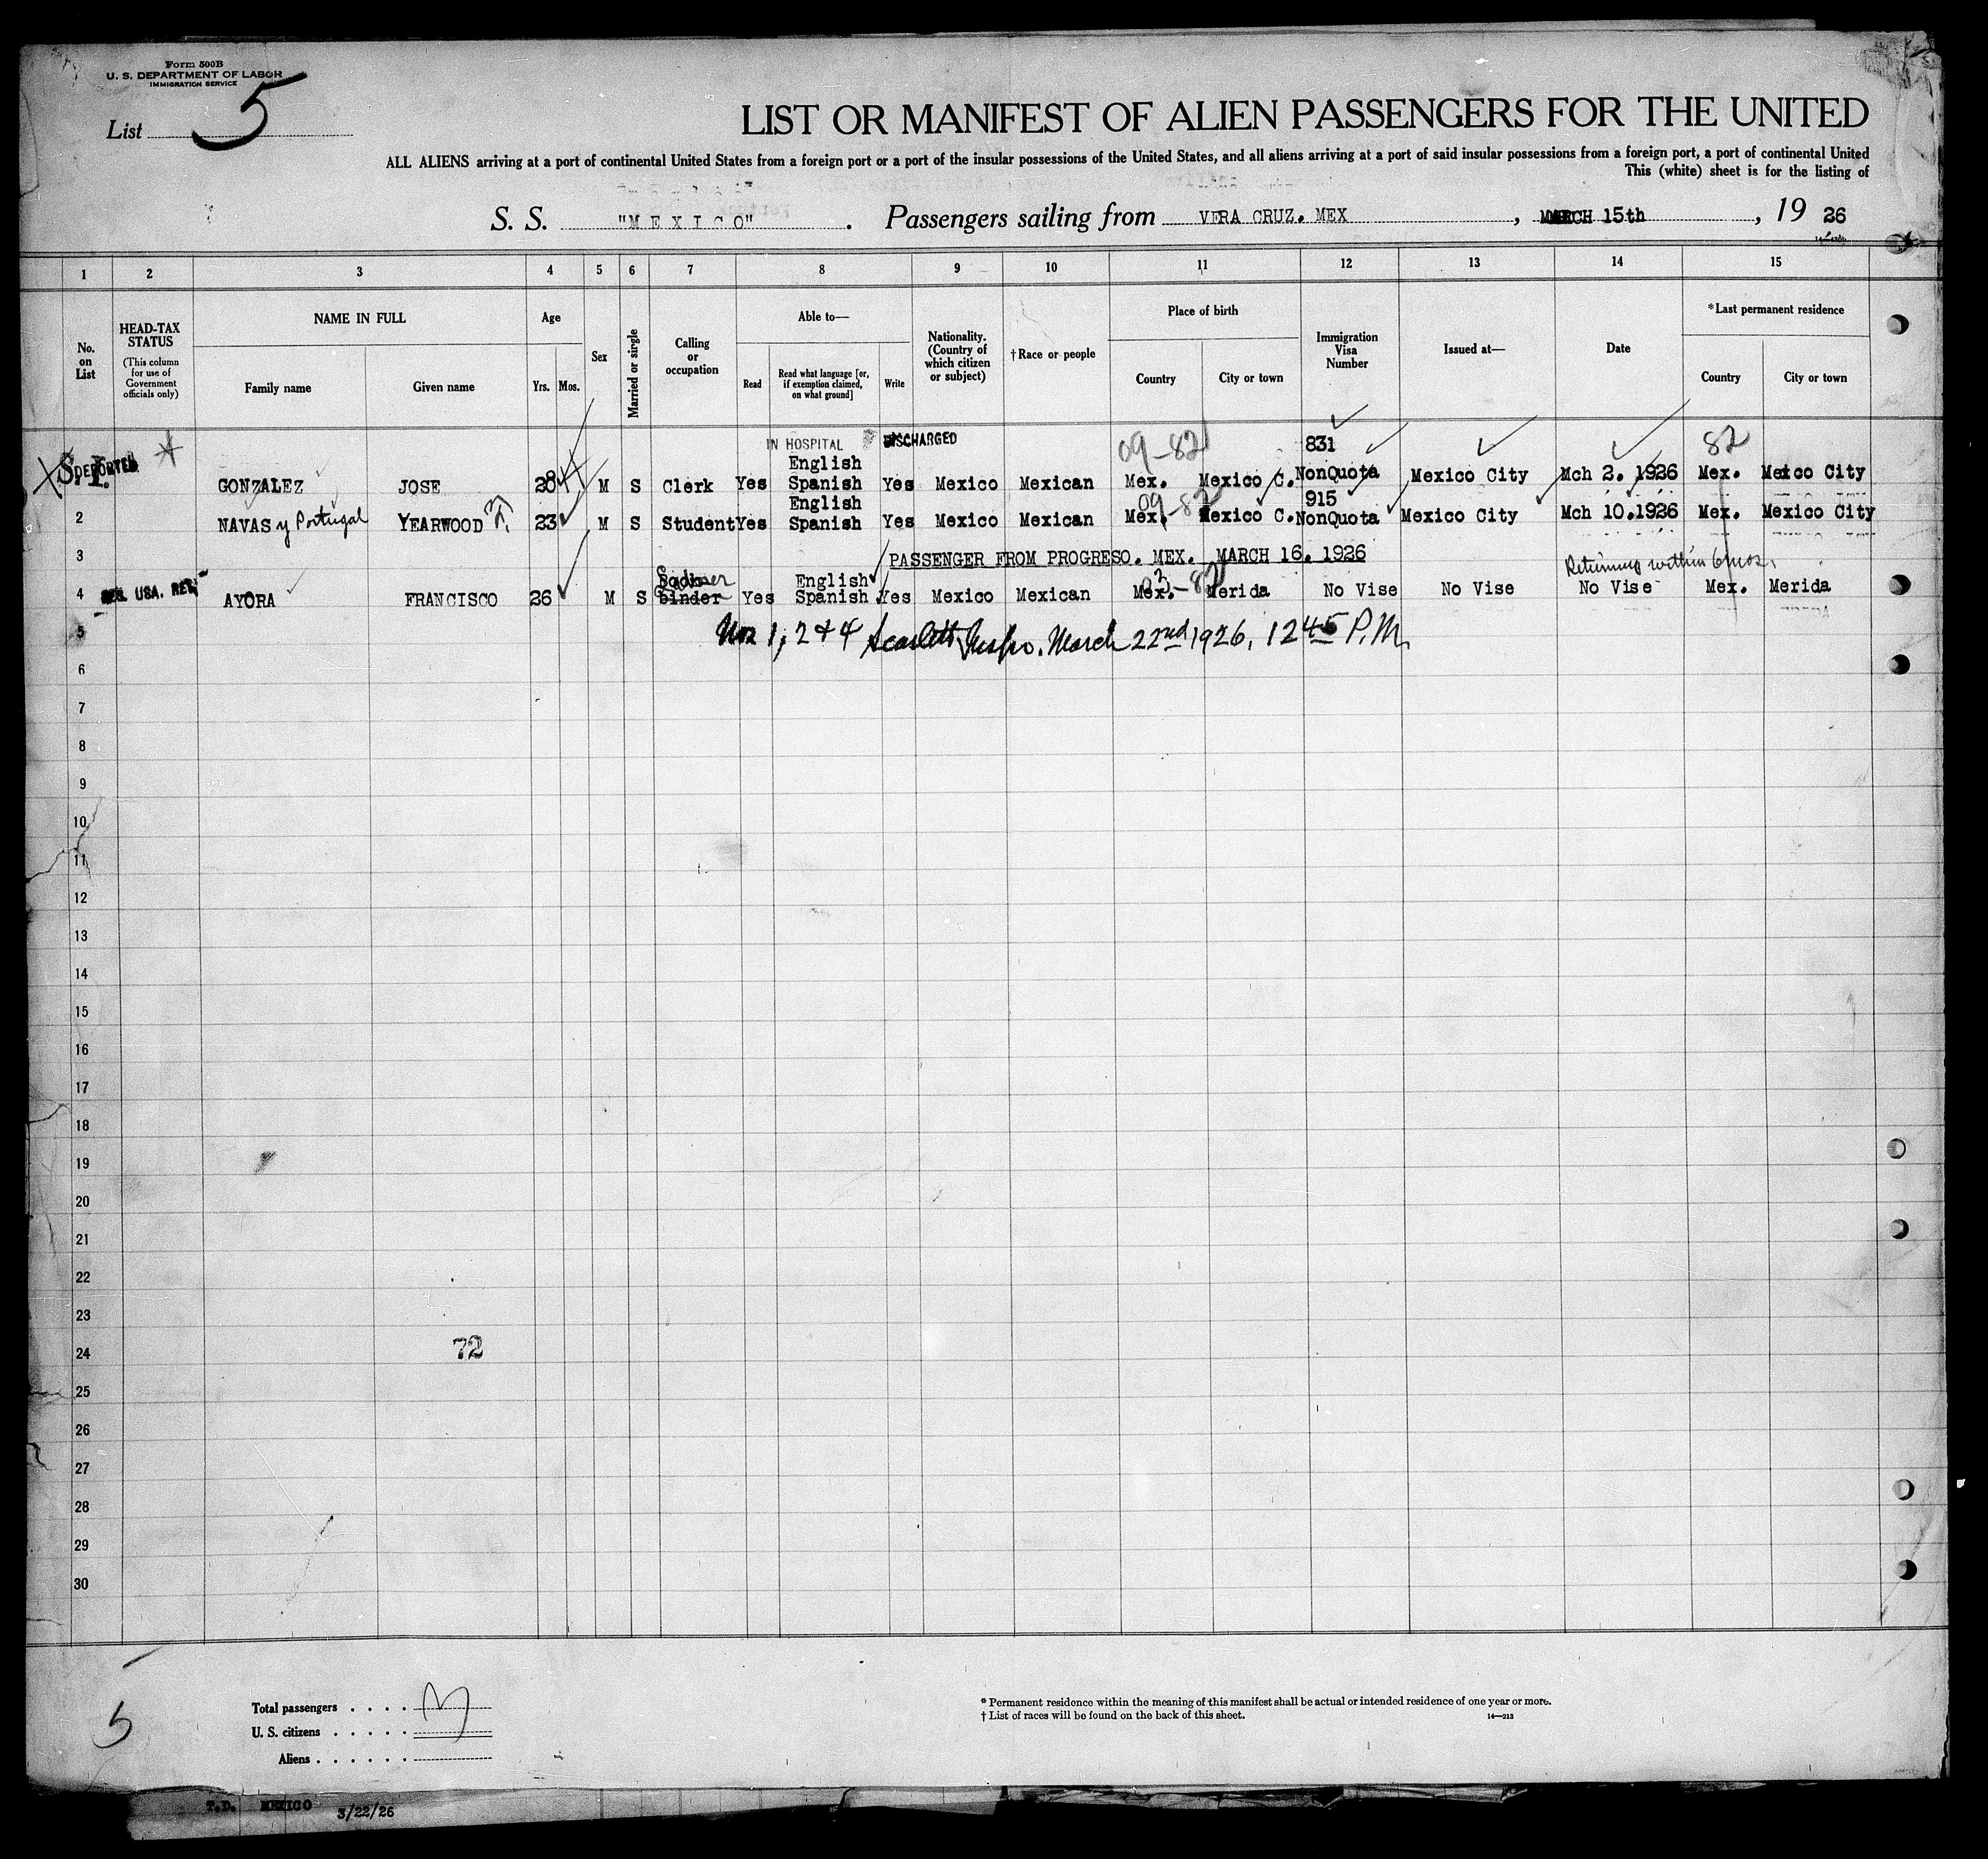 Form 500B
U. S. DEPARTMENT OF LABOR
IMMIGRATION SERVICE
List 5
LIST OR MANIFEST OF ALIEN PASSENGERS FOR THE UNITED
ALL ALIENS arriving at a port of continental United States from a foreign port or a port of the insular possessions of the United States, and all aliens arriving at a port of said insular possessions from a foreign port, a port of continental United
This (white) sheet is for the listing of
S. S. "MEXICO". Passengers sailing from VERA CRUZ. MEX, MARCH 15th, 19 26
1 2 3 4 5 6 7 8 9 10 11 12 13 14 15
No. on List
HEAD-TAX STATUS
(This column for use of Government officials only)
NAME IN FULL
Family name
Given name
Age
Yrs. Mos.
Sex
Married or single
Calling or occupation
Able to—
Read
Read what language [or, if exemption claimed, on what ground]
Write
Nationality. (Country of which citizen or subject)
†Race or people
Place of birth
Country
City or town
Immigration Visa Number
Issued at—
Date
*Last permanent residence
Country
City or town
IN HOSPITAL DISCHARGED 09-82 831 82
S.I. DEPORTED GONZALEZ JOSE 28 M S Clerk Yes English Spanish Yes Mexico Mexican Mex. Mexico C. NonQuota Mexico City Mch 2. 1926 Mex. Meico City
09-82 915
2 NAVAS y Portugal YEARWOOD 23 M S Student Yes English Spanish Yes Mexico Mexican Mex. Mexico C. NonQuota Mexico City Mch 10.1926 Mex. Mexico City
3 PASSENGER FROM PROGRESO. MEX. MARCH 16. 1926
Returning within 6 mos.
4 USA. AYORA FRANCISCO 26 M S binder Yes English Spanish Yes Mexico Mexican Mex. Merida No Vise No Vise No Vise Mex. Merida
5 Nos 1, 2 & 4 Scarlett, Inspr. March 22nd 1926, 12 45 P.M.
6
7
8
9
10
11
12
13
14
15
16
17
18
19
20
21
22
23
24 72
25
26
27
28
29
30
5
Total passengers . . . .
U. S. citizens . . . . .
Aliens . . . . . .
* Permanent residence within the meaning of this manifest shall be actual or intended residence of one year or more.
† List of races will be found on the back of this sheet.
14—213
T.D. MEXICO 3/22/26